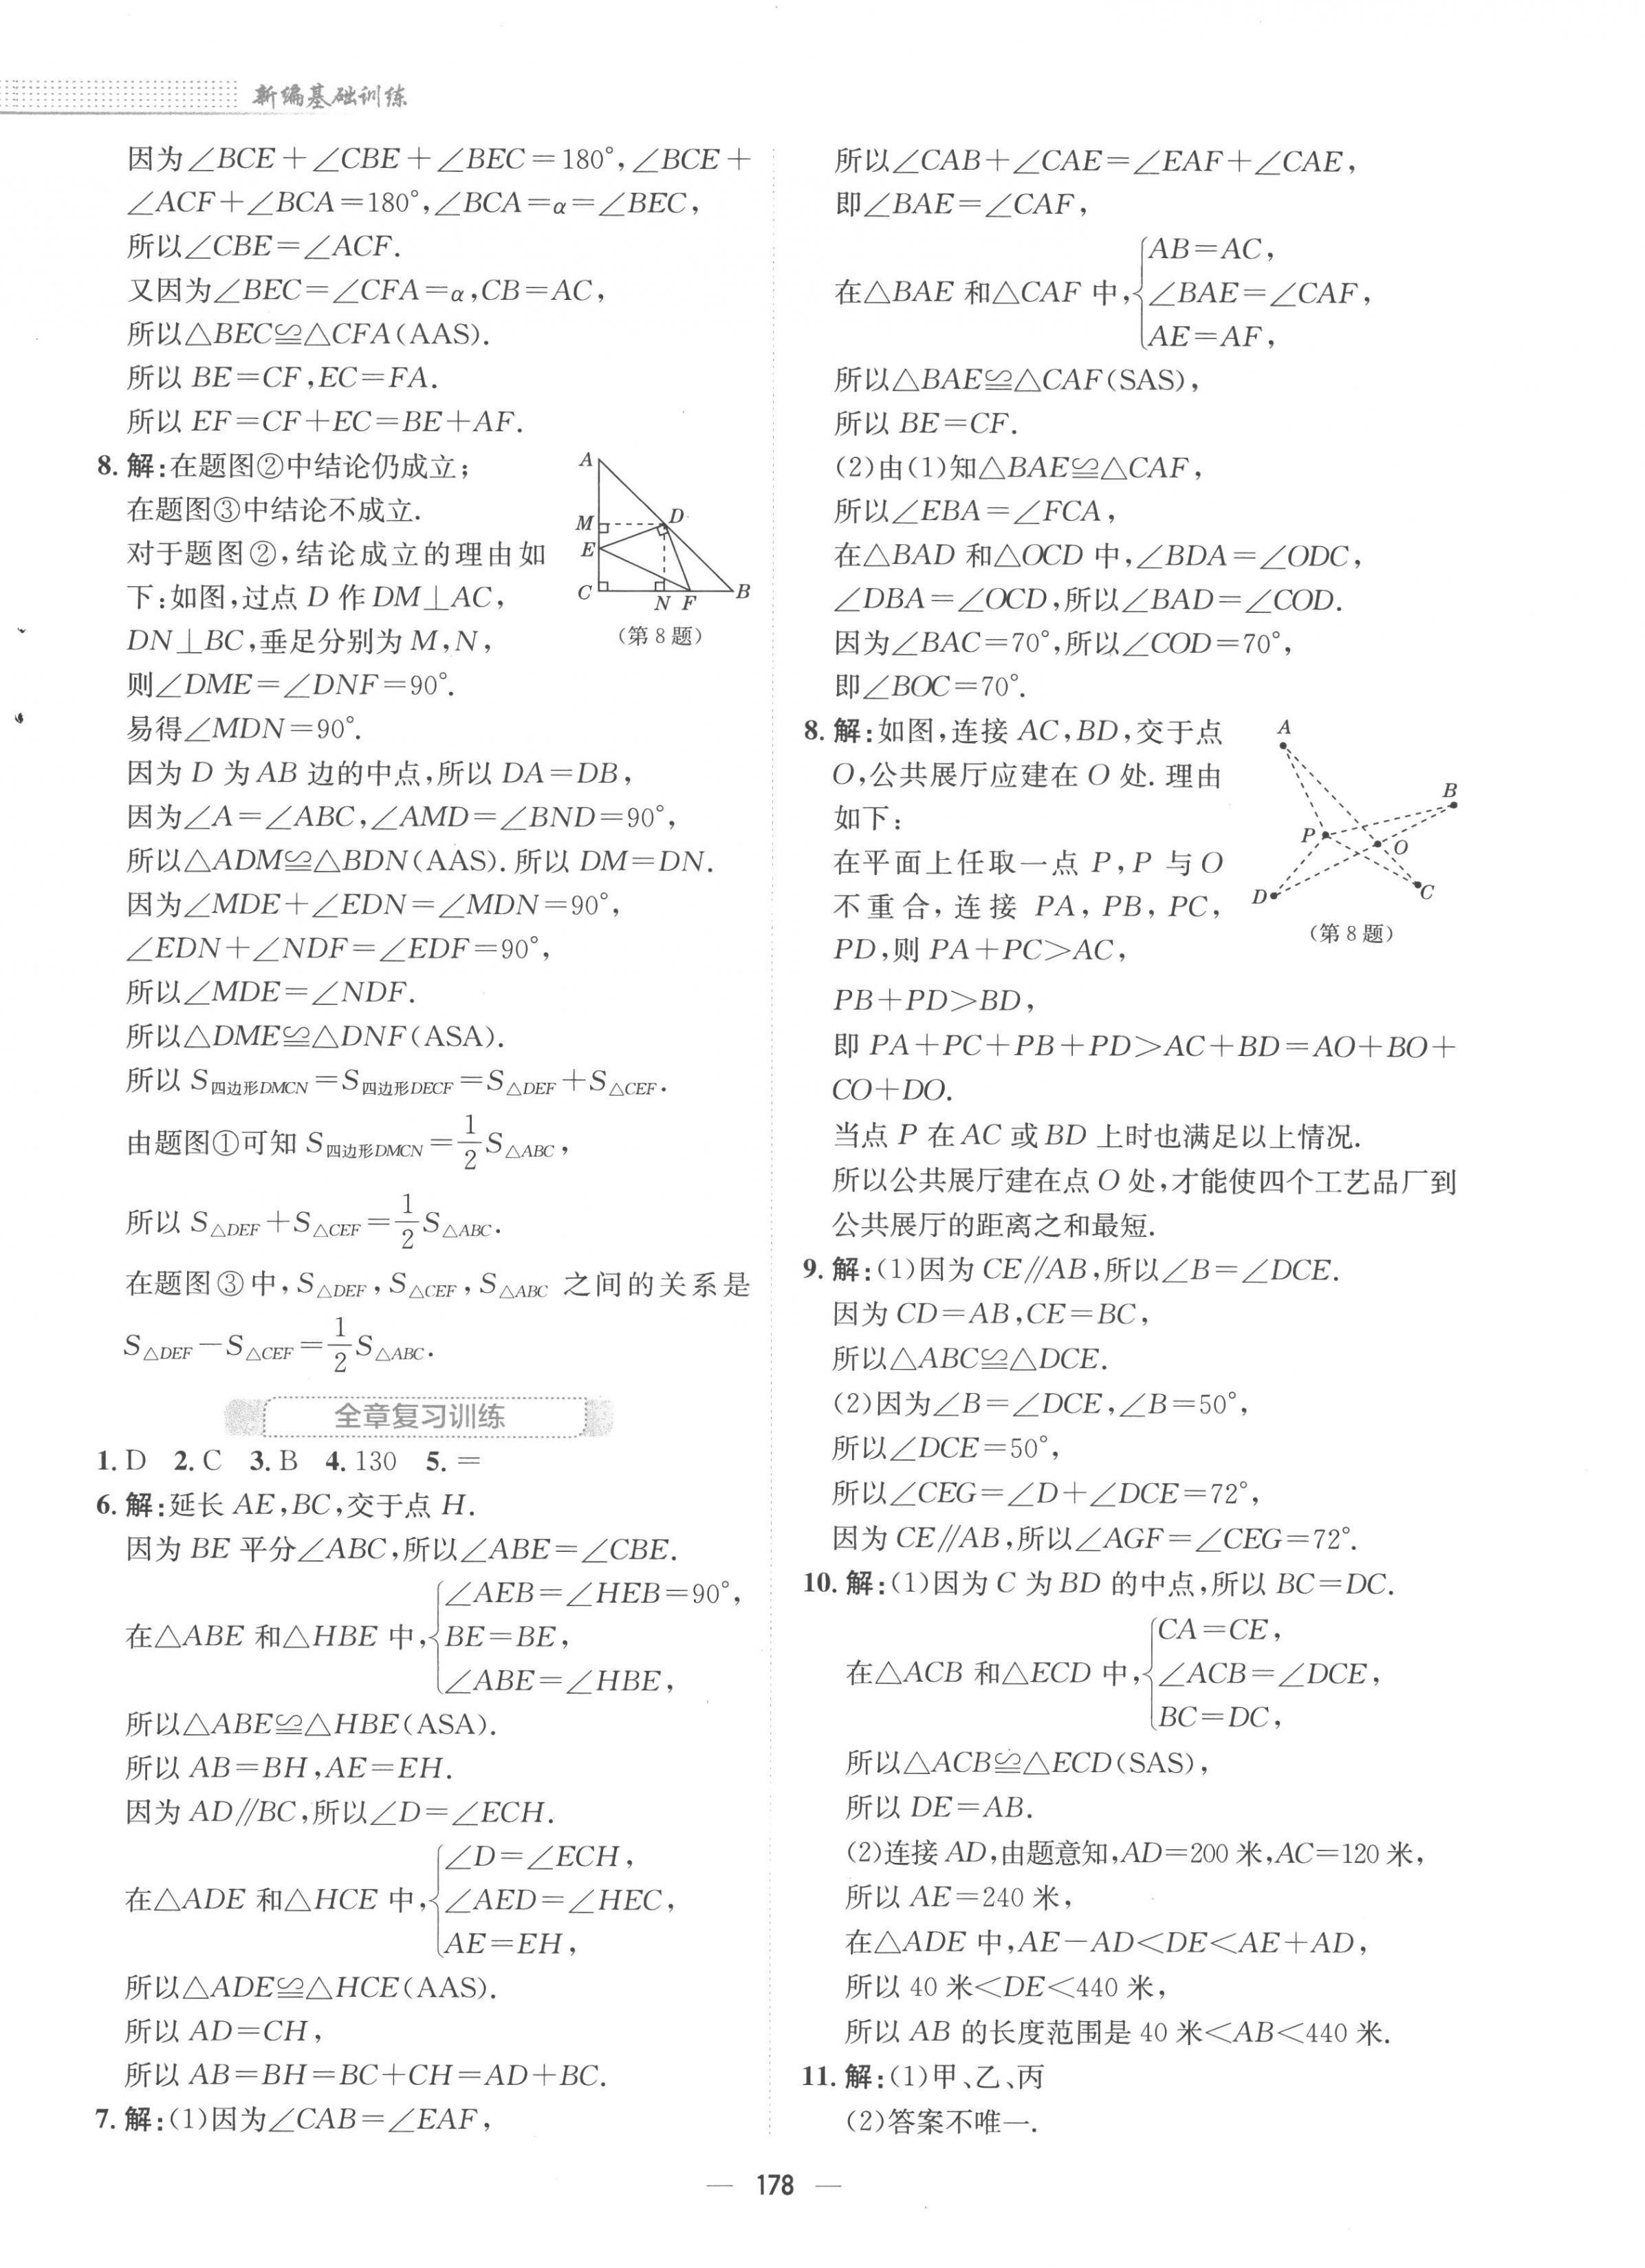 新编基础训练
因为∠BCE＋∠CBE＋∠BEC＝180°,∠BCE＋
∠ACF＋∠BCA＝180°,∠BCA＝α＝∠BEC,
所以∠CBE＝∠ACF.
又因为∠BEC＝∠CFA＝α,CB＝AC,
所以△BEC≌△CFA(AAS).
所以 BE＝CF,EC＝FA.
所以 EF＝CF＋EC＝BE＋AF.
8. 解:在题图②中结论仍成立;
在题图③中结论不成立.
对于题图②,结论成立的理由如
下:如图,过点 D 作 DM⊥AC,
DN⊥BC,垂足分别为 M,N,
A
M
D
E
C
N
F
B
(第 8 题)
则∠DME＝∠DNF＝90°.
易得∠MDN＝90°.
因为 D 为 AB 边的中点,所以 DA＝DB,
因为∠A＝∠ABC,∠AMD＝∠BND＝90°,
所以△ADM≌△BDN(AAS). 所以 DM＝DN.
因为∠MDE＋∠EDN＝∠MDN＝90°,
∠EDN＋∠NDF＝∠EDF＝90°,
所以∠MDE＝∠NDF.
所以△DME≌△DNF(ASA).
所以 S四边形DMCN＝S四边形DECF＝S△DEF＋S△CEF.
由题图①可知 S四边形DMCN＝1/2 S△ABC,
所以 S△DEF＋S△CEF＝1/2 S△ABC.
在题图③中,S△DEF,S△CEF,S△ABC 之间的关系是
S△DEF－S△CEF＝1/2 S△ABC.
全章复习训练
1. D 2. C 3. B 4. 130 5. ＝
6. 解:延长 AE,BC,交于点 H.
因为 BE 平分∠ABC,所以∠ABE＝∠CBE.
∠AEB＝∠HEB＝90°,
在△ABE 和△HBE 中,{BE＝BE,
∠ABE＝∠HBE,
所以△ABE≌△HBE(ASA).
所以 AB＝BH,AE＝EH.
因为 AD∥BC,所以∠D＝∠ECH.
∠D＝∠ECH,
在△ADE 和△HCE 中,{∠AED＝∠HEC,
AE＝EH,
所以△ADE≌△HCE(AAS).
所以 AD＝CH,
所以 AB＝BH＝BC＋CH＝AD＋BC.
7. 解:(1)因为∠CAB＝∠EAF,
所以∠CAB＋∠CAE＝∠EAF＋∠CAE,
即∠BAE＝∠CAF,
AB＝AC,
在△BAE 和△CAF 中,{∠BAE＝∠CAF,
AE＝AF,
所以△BAE≌△CAF(SAS),
所以 BE＝CF.
(2)由(1)知△BAE≌△CAF,
所以∠EBA＝∠FCA,
在△BAD 和△OCD 中,∠BDA＝∠ODC,
∠DBA＝∠OCD,所以∠BAD＝∠COD.
因为∠BAC＝70°,所以∠COD＝70°,
即∠BOC＝70°.
8. 解:如图,连接 AC,BD,交于点
O,公共展厅应建在 O 处. 理由
如下:
在平面上任取一点 P,P 与 O
不重合, 连接 PA, PB, PC,
PD,则 PA＋PC＞AC,
A
B
P
O
D
C
(第 8 题)
PB＋PD＞BD,
即 PA＋PC＋PB＋PD＞AC＋BD＝AO＋BO＋
CO＋DO.
当点 P 在 AC 或 BD 上时也满足以上情况.
所以公共展厅建在点 O 处,才能使四个工艺品厂到
公共展厅的距离之和最短.
9. 解:(1)因为 CE∥AB,所以∠B＝∠DCE.
因为 CD＝AB,CE＝BC,
所以△ABC≌△DCE.
(2)因为∠B＝∠DCE,∠B＝50°,
所以∠DCE＝50°,
所以∠CEG＝∠D＋∠DCE＝72°,
因为 CE∥AB,所以∠AGF＝∠CEG＝72°.
10. 解:(1)因为 C 为 BD 的中点,所以 BC＝DC.
CA＝CE,
在△ACB 和△ECD 中,{∠ACB＝∠DCE,
BC＝DC,
所以△ACB≌△ECD(SAS),
所以 DE＝AB.
(2)连接 AD,由题意知,AD＝200 米,AC＝120 米,
所以 AE＝240 米,
在△ADE 中,AE－AD＜DE＜AE＋AD,
所以 40 米＜DE＜440 米,
所以 AB 的长度范围是 40 米＜AB＜440 米.
11. 解:(1)甲、乙、丙
(2)答案不唯一.
— 178 —